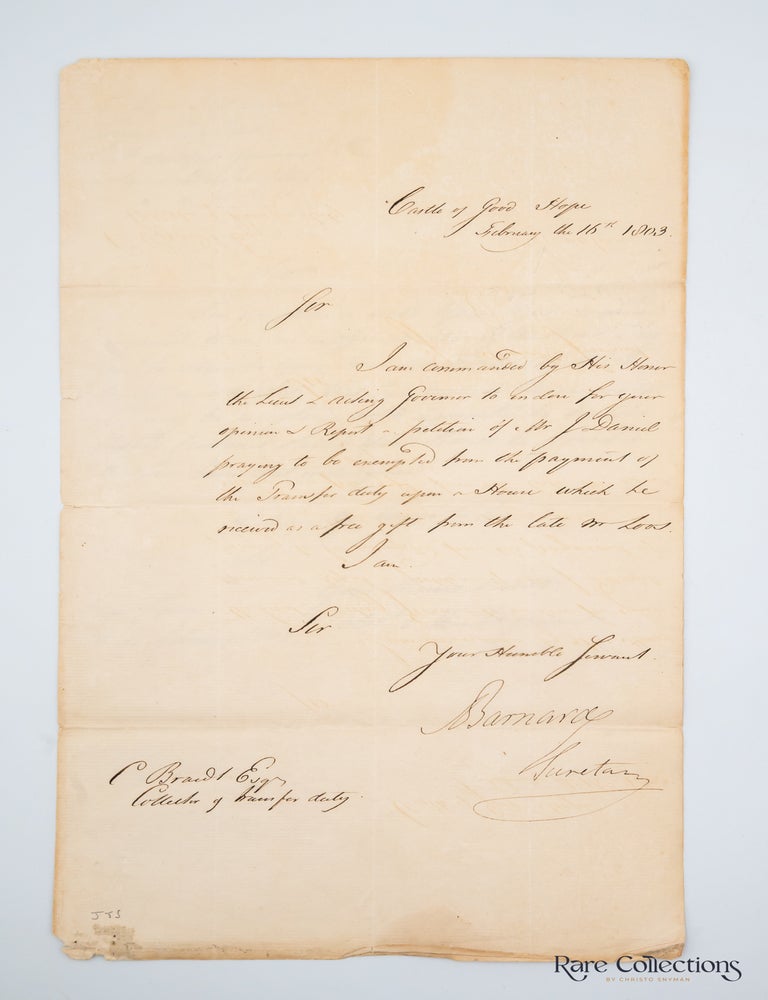 Castle of Good Hope
February the 16th 1803.
Sir
I am commanded by His Honor
the Lieut & acting Governor to inclose for your
opinion & Report a petition of Mr J Daniel
praying to be exempted from the payment of
the Transfer duty upon a House which he
received as a free gift from the late Mr Loos.
I am.
Sir
Your Humble Servant.
ABarnard
Secretary
C Brandt Esqr
Collector of transfer duty.
Rare Collections
BY CHRISTO SNYMAN